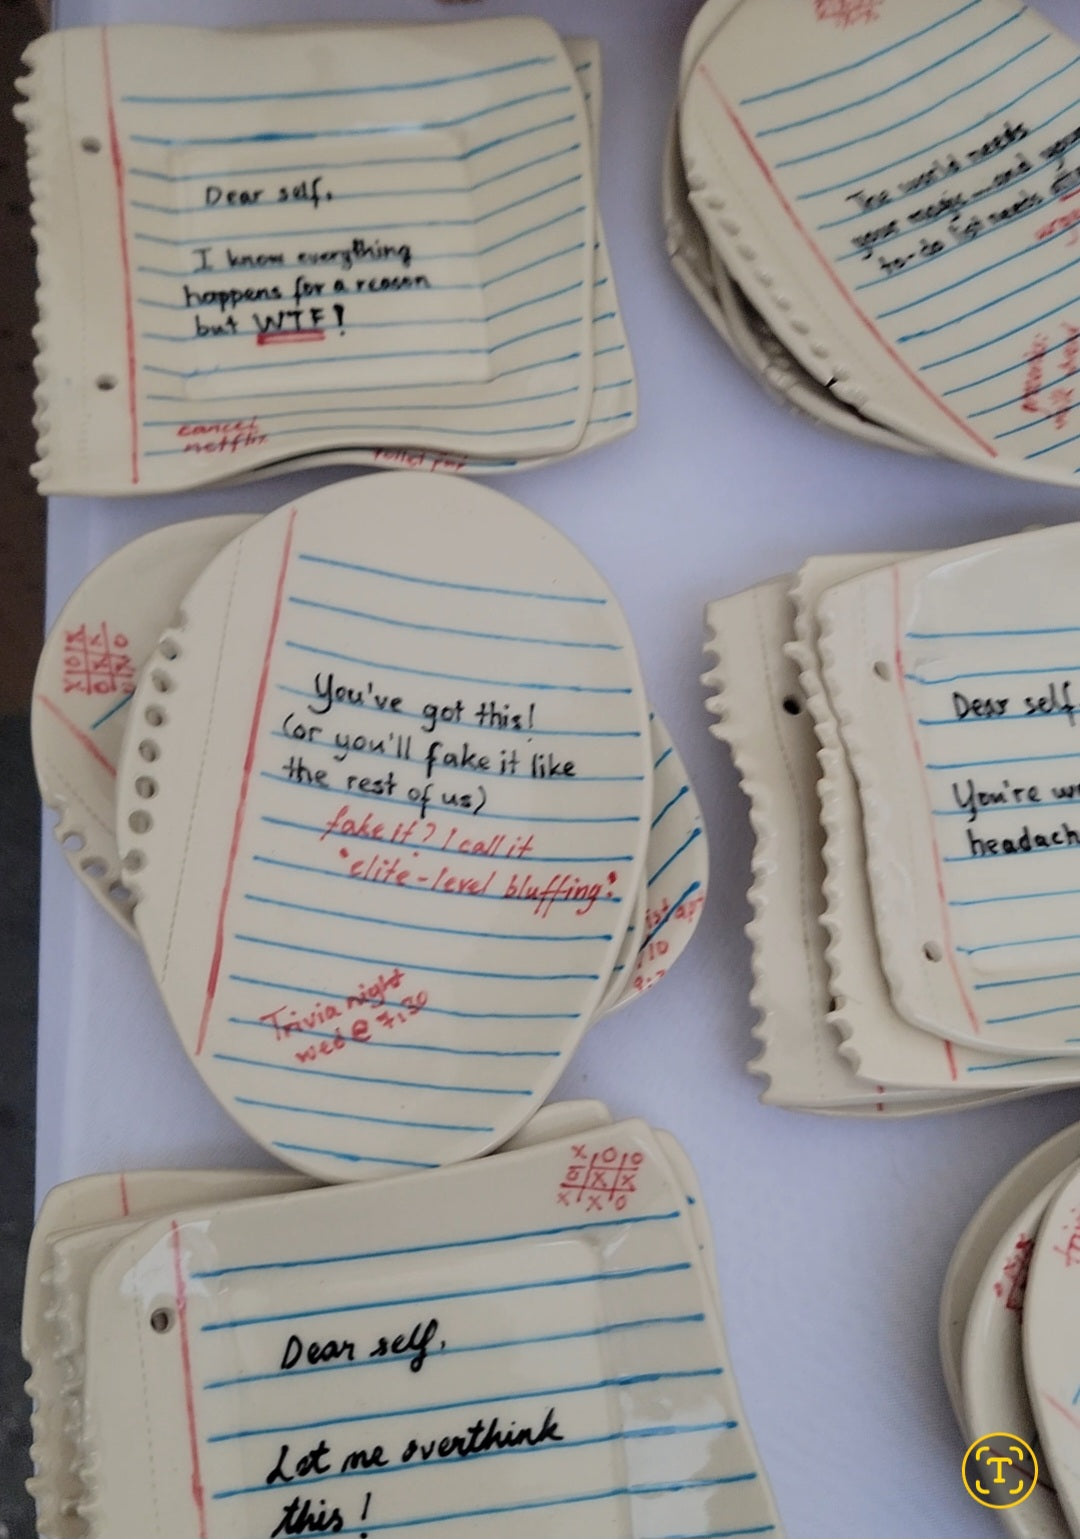 Dear self,
I know everything
happens for a reason
but WTF!
cancel
netflix
The world needs
your magic—and your
to-do list needs
You've got this!
(or you'll fake it like
the rest of us)
fake it? I call it
"elite-level bluffing"
Trivia night
wed @ 7:30
Dear self
You're
headach
X O O
O X X
X X O
Dear self,
Let me overthink
this!